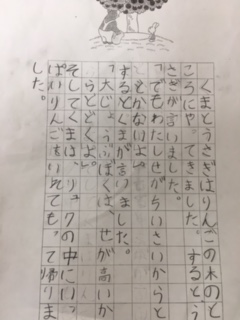 くまとうさぎはりんごの木のと
ころにやってきました。するとう
さぎが言いました。
「でもわたしせがちいさいからと
とどかないよ。」
するとくまが言いました。
「大じょうぶぼくは、せが高いか
らとどくよ。」
そしてくまは、リュクの中にいっ
ぱいりんごをいれても。て帰りま
した。